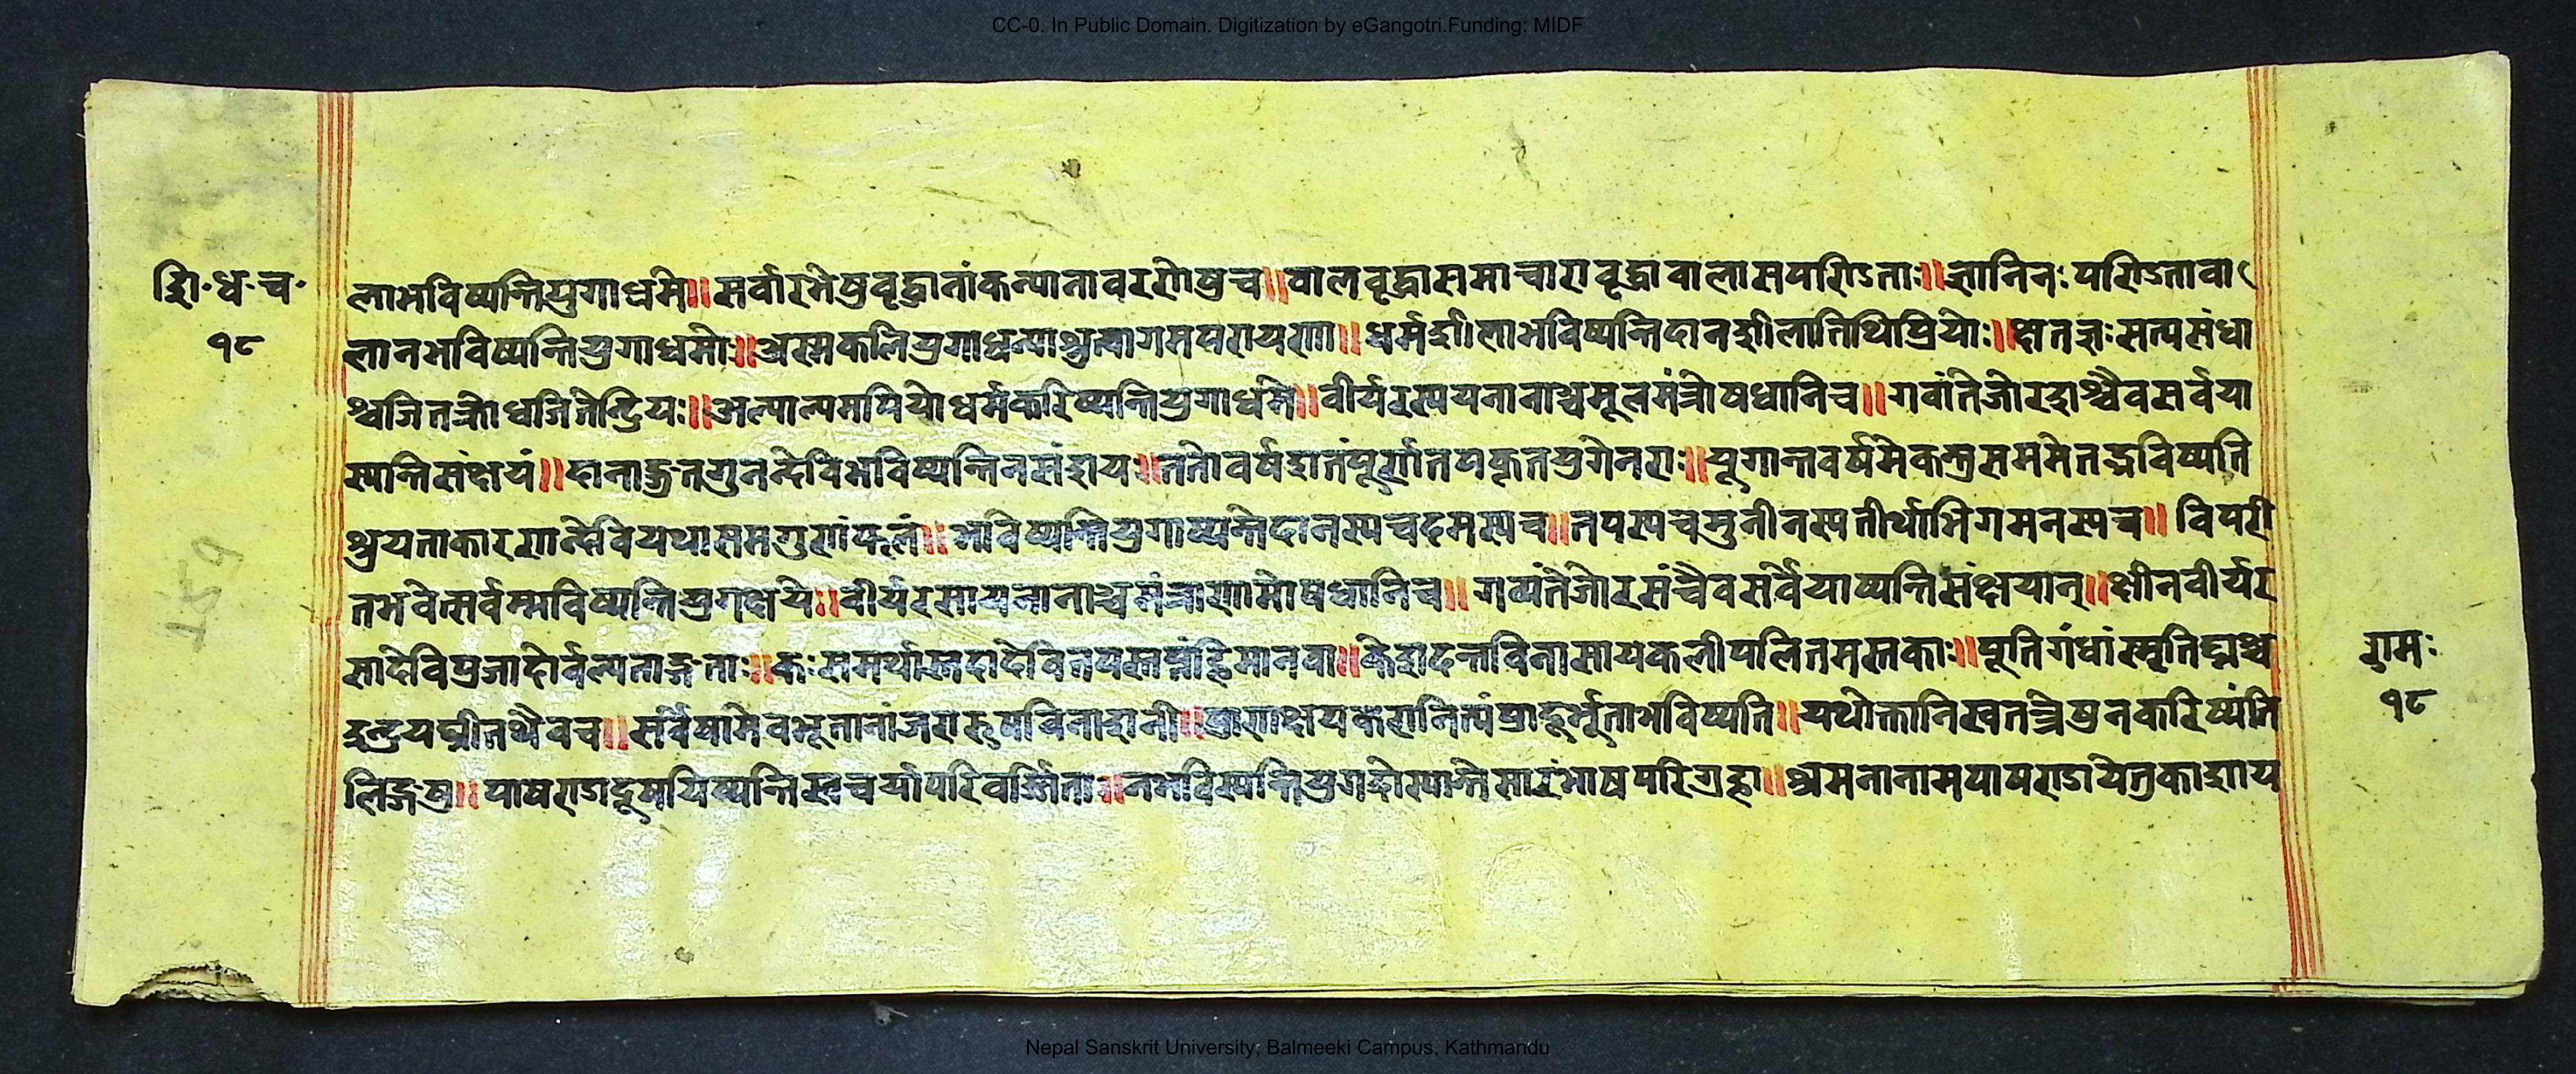 CC-0. In Public Domain. Digitization by eGangotri.Funding: MIDF
शि॰ध॰च॰
१८
लाभविष्यन्तियुगाधमे॥सर्वारंभेषुवृद्धानांकन्यानावरणेषुच॥वालवृद्धासमाचारावृद्धावालासपण्डिताः॥ज्ञानिनःपण्डितावा
लानभविष्यन्तियुगाधमेः॥अस्मकलियुगाधन्याश्रुत्वागमपरायणा॥धर्मशीलाभविष्यन्तिदानशीलातिथिप्रियोः॥क्षातज्ञःसत्यसंधा
श्वजितक्रोधजितेन्द्रियः॥अल्पाल्पमपियेधर्मकरिष्यन्तियुगाधमे॥वीर्यरस्पयनानाञ्चमूलमंत्रौषधानिच॥गवांतेजोरशश्चैवसर्वया
स्पन्तिसंक्षयं॥दानाङ्गतगुनन्देविभविष्यन्तिनसंशय॥ततोवर्षशतंपूर्णतपकृतयुगेनराः॥पूगान्तवर्षमेकन्तुसममेतद्भविष्यति
श्रुयताकारणन्देवियथासमगुणंफलं॥भविष्यन्तियुगाष्यन्तेदानस्पचदमस्पच॥तपस्पचमुनीनस्पतीर्थाभिगमनस्पच॥विपरी
तभवेत्सर्वम्भविष्यन्तियुगक्षये॥वीर्यरसायनानाञ्चमंत्राणामोषधानिच॥गव्यंतेजोरसंचैवसर्वेयाष्यन्तिसंक्षयान्॥क्षीनवीर्यर
सादेविप्रजादोर्वल्पताङ्गताः॥कःसमर्थास्तदादेवितपस्तप्तांहिमानवा॥केशदन्तविनासायकलीपलितमस्तकाः॥पूतिगंधांस्मृतिघ्नाश्च
इन्द्रियघ्नीतथैवच॥सर्वेषामेवभूतानांजरारूपविनाशनी॥प्राणक्षयकरानित्यंप्रादूर्भूताभविष्यति॥यथोक्तानिस्वतन्त्रेषुनकरिष्यंति
लिङ्गेषु॥पाषण्डादूषयिष्यन्तिस्वचर्यापरिवर्ज्जिता॥
राम॰
१८
Nepal Sanskrit University, Balmeeki Campus, Kathmandu